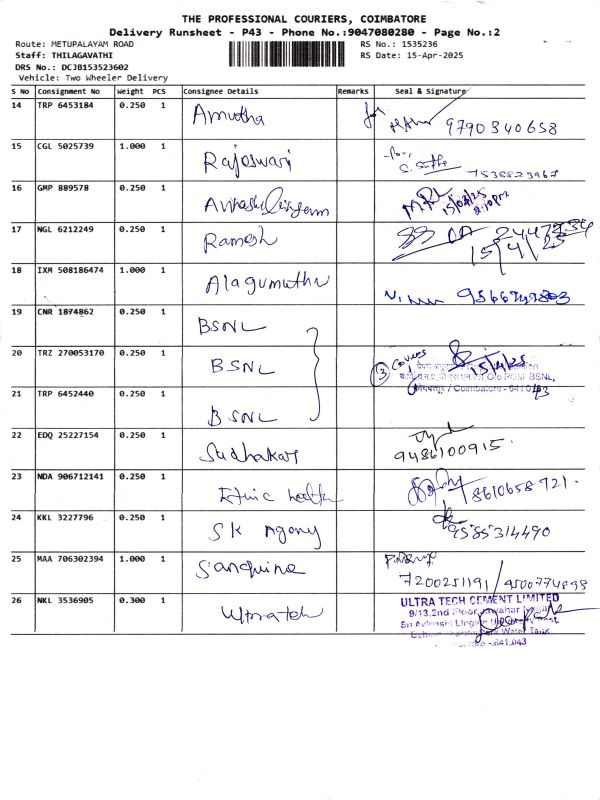 THE PROFESSIONAL COURIERS, COIMBATORE
Delivery Runsheet - P43 - Phone No.:9047080280 - Page No.:2
Route: METUPALAYAM ROAD RS No.: 1535236
Staff: THILAGAVATHI RS Date: 15-Apr-2025
DRS No.: DCJB153523602
Vehicle: Two Wheeler Delivery
S No Consignment No Weight PCS Consignee Details Remarks Seal & Signature
14 TRP 6453184 0.250 1 Amutha for 9790340658
15 CGL 5025739 1.000 1 Rajeswari for 7538823967
16 GMP 889578 0.250 1
17 NGL 6212249 0.250 1 Ramesh 15/4/25
18 IXM 508186474 1.000 1 Alagumuthu
19 CNR 1874862 0.250 1 BSNL
20 TRZ 270053170 0.250 1 BSNL 3 Covers 15/4/25
O/o PGM BSNL,
Coimbatore - 641 043
21 TRP 6452440 0.250 1 BSNL
22 EDQ 25227154 0.250 1 Sudhakar 9486100915.
23 NDA 906712141 0.250 1 Ethnic health 8610658921.
24 KKL 3227796 0.250 1 SK Agency 9585314490
25 MAA 706302394 1.000 1 Sanquine 7200251191/9500774898
26 NKL 3536905 0.300 1 Ultratech
ULTRA TECH CEMENT LIMITED
9/13, 2nd Floor, Jawahar
Sri Avinashi
Water Tank
- 641 043